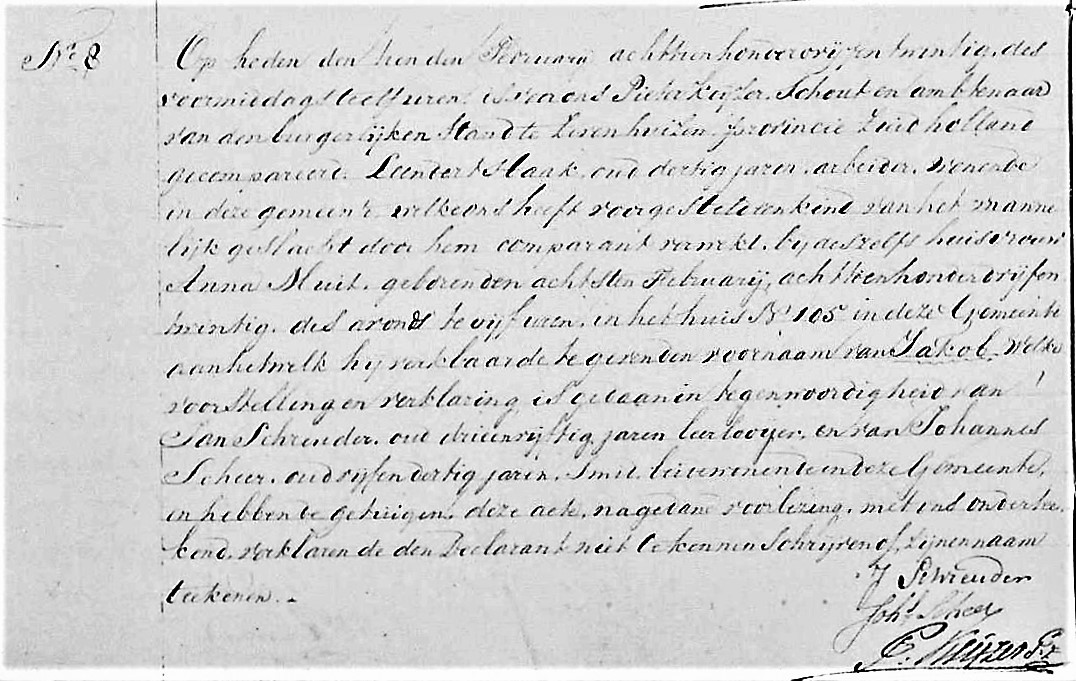 Nr 8
Op heden den tienden Februarij achttienhonderdvijfentwintig, des
voormiddags te elf uren, is voor ons Pieter Keijzer, Schout en ambtenaar
van den burgerlijken Stand te Zevenhuizen, provincie Zuidholland
gecompareerd, Leendert Slaak, oud dertig jaren, arbeider, wonende
in deze gemeente, welke ons heeft voorgesteld een kind van het manne
lijk geslacht door hem comparant verwekt, bij deszelfs huisvrouw
Anna Muit, geboren den achtsten Februarij, achttienhonderdvijfen
twintig, des avonds te vijf uren, in het huis No 105 in deze Gemeente
aan hetwelk hij verklaarde te geven den voornaam van Jakob, Welke
voorstelling en verklaring, is gedaan in tegenwoordigheid van
Jan Schreuder, oud drieenvijftig jaren leerlooijer, en van Johannes
Scheer, oud vijfendertig jaren, Smit, beide wonende in deze Gemeente,
en hebben de getuigen, deze acte, na gedane voorlezing, met ons onderte
kend, verklarende den Declarant niet te kennen Schrijven of Zijnen naam
teekenen. -
J Schreuder
Johs Scheer
P. Keijzer Pz